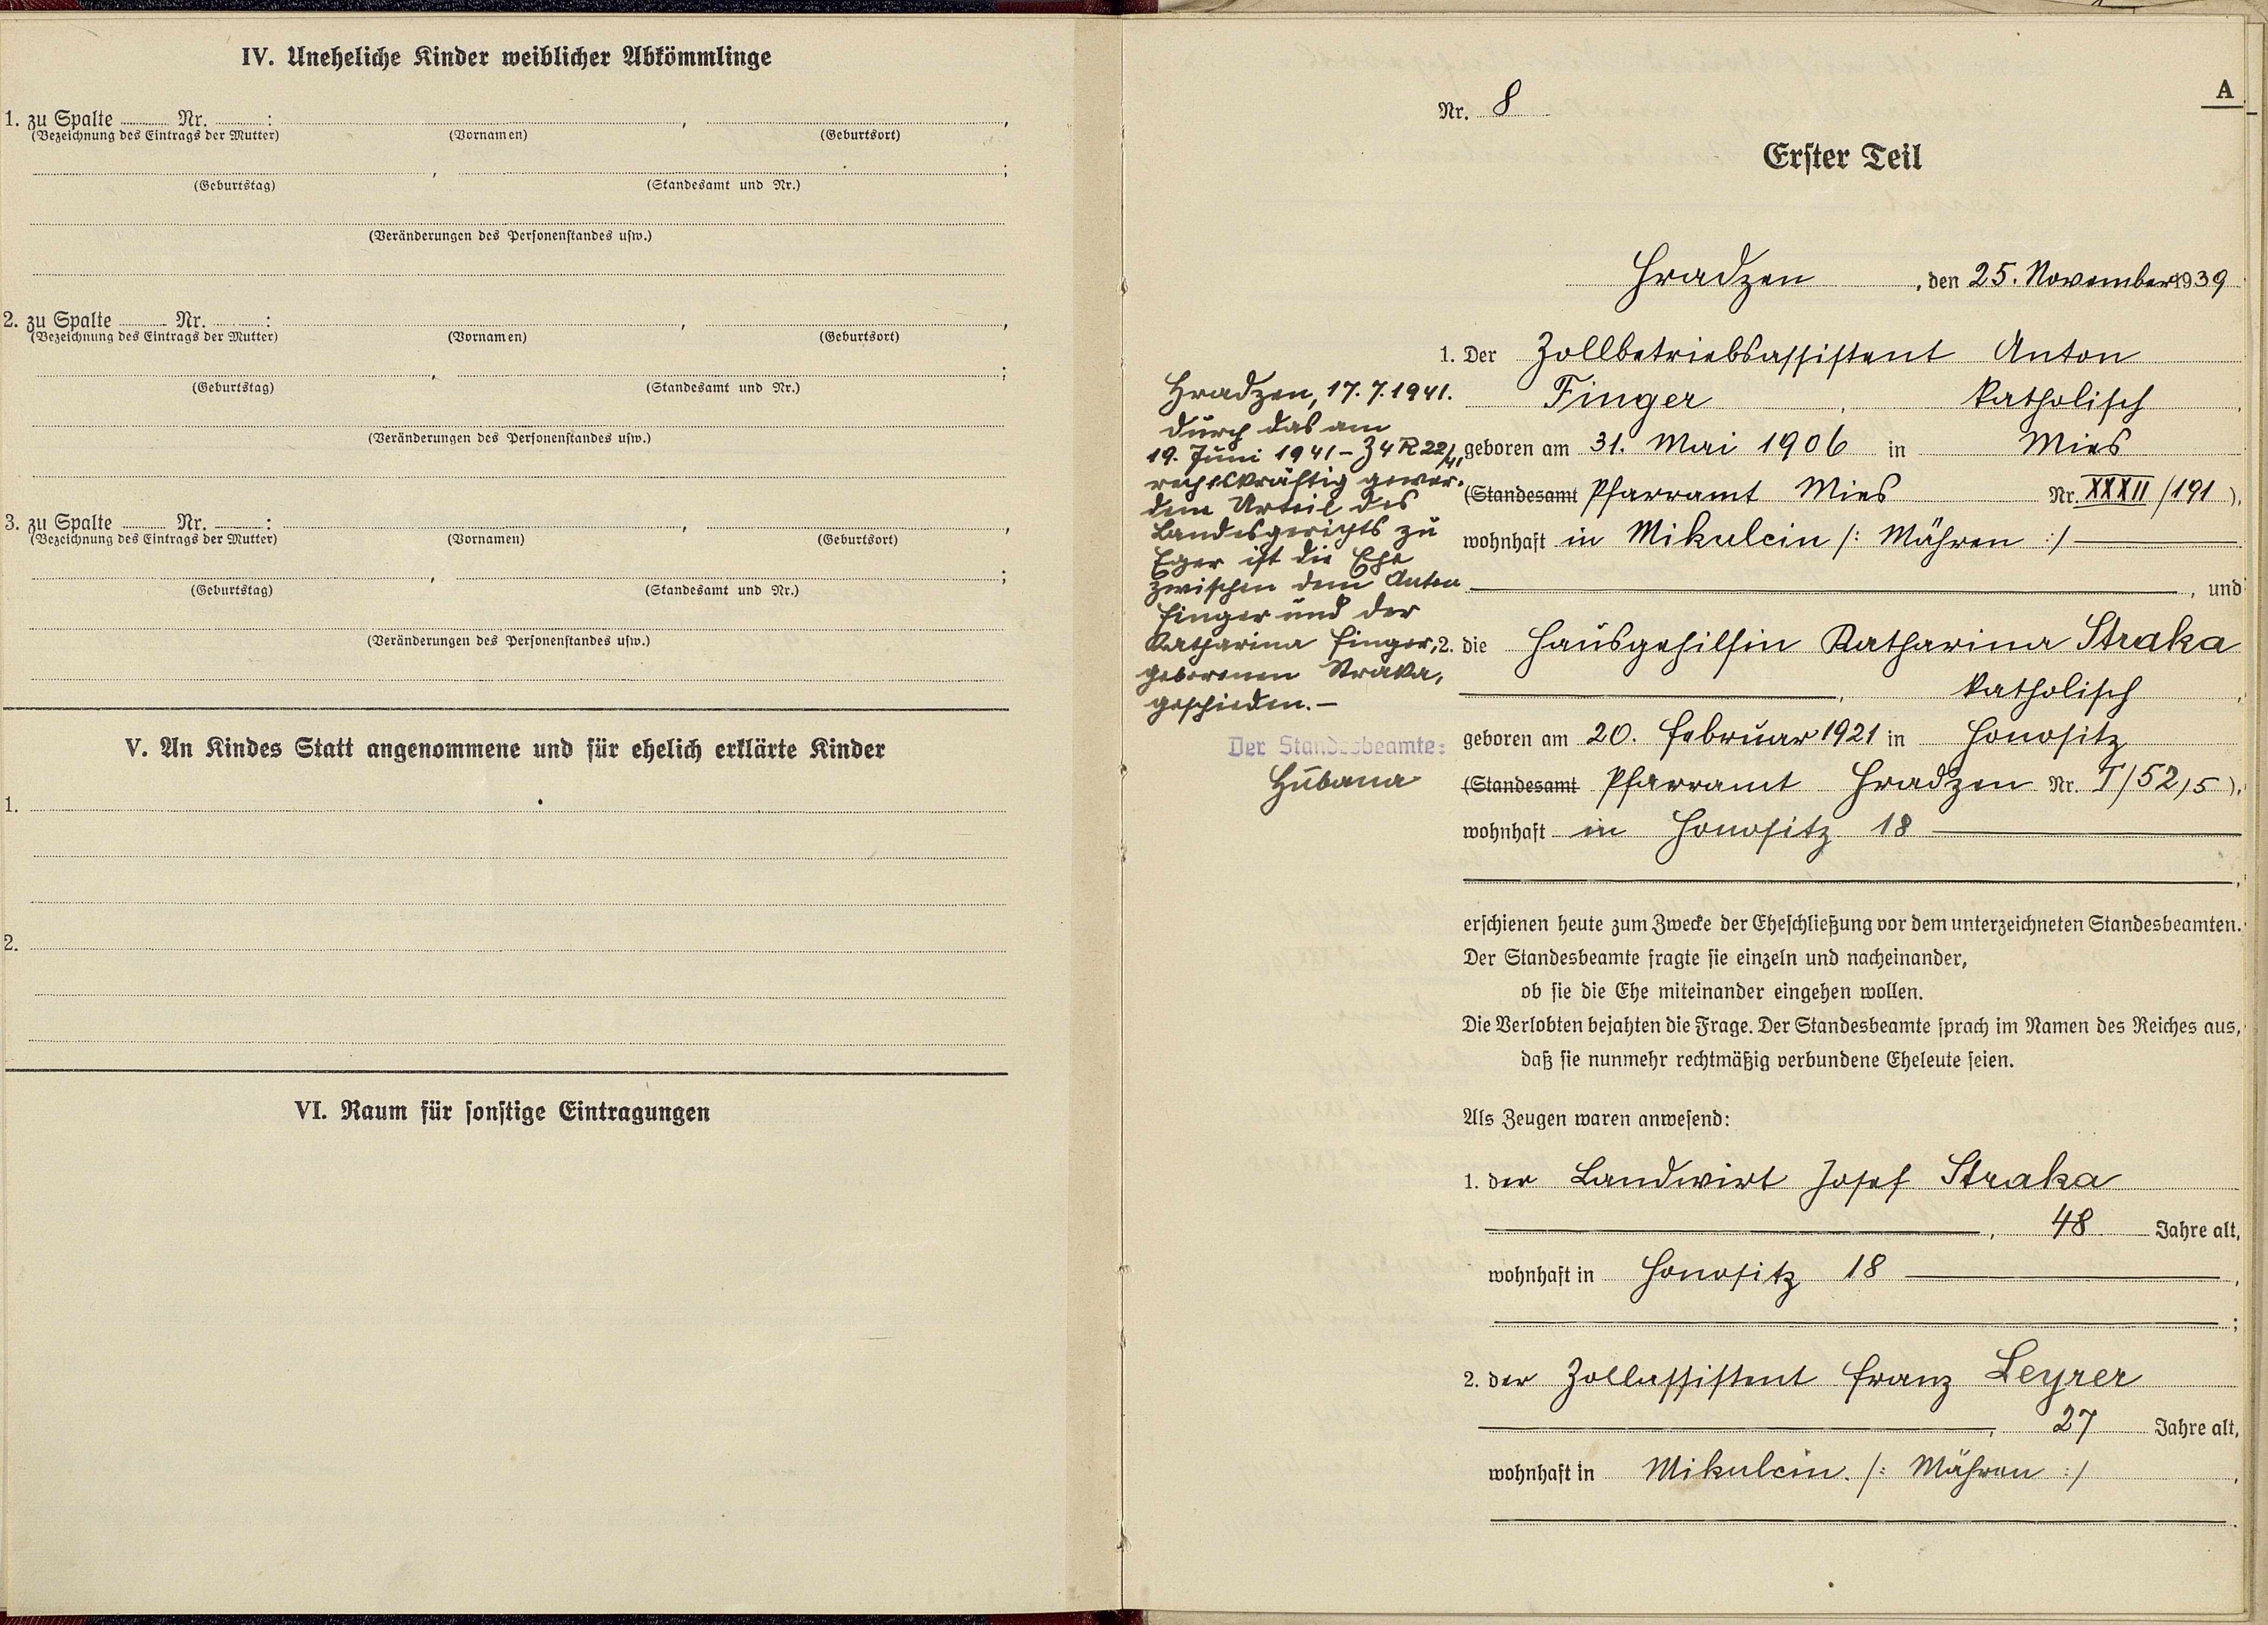 IV. Uneheliche Kinder weiblicher Abkömmlinge
1. zu Spalte Nr. : , ,
(Bezeichnung des Eintrags der Mutter) (Vornamen) (Geburtsort)
, ;
(Geburtstag) (Standesamt und Nr.)
(Veränderungen des Personenstandes usw.)
2. zu Spalte Nr. : , ,
(Bezeichnung des Eintrags der Mutter) (Vornamen) (Geburtsort)
, ;
(Geburtstag) (Standesamt und Nr.)
(Veränderungen des Personenstandes usw.)
3. zu Spalte Nr. : , ,
(Bezeichnung des Eintrags der Mutter) (Vornamen) (Geburtsort)
, ;
(Geburtstag) (Standesamt und Nr.)
(Veränderungen des Personenstandes usw.)
V. An Kindes Statt angenommene und für ehelich erklärte Kinder
1.
2.
VI. Raum für sonstige Eintragungen
A
Nr. 8
Erster Teil
Hradzen, den 25. November 1939
1. Der Zollbetriebsassistent Anton
Finger, katholisch,
geboren am 31. Mai 1906 in Mies
(Standesamt Pfarramt Mies Nr. XXXII/191),
wohnhaft in Mikulcin /: Mähren :/
, und
2. die Hausgehilfin Katharina Straka
, katholisch,
geboren am 20. Februar 1921 in Honositz
(Standesamt Pfarramt Hradzen Nr. I/52,5),
wohnhaft in Honositz 18
,
Hradzen, 17.7.1941.
Durch das am
19. Juni 1941 – 3 4 R 22/41
rechtskräftig gewor-
dene Urteil des
Landesgerichts zu
Eger ist die Ehe
zwischen dem Anton
Finger und der
Katharina Finger,
geborenen Straka,
geschieden. –
Der Standesbeamte:
Hubana
erschienen heute zum Zwecke der Eheschließung vor dem unterzeichneten Standesbeamten.
Der Standesbeamte fragte sie einzeln und nacheinander,
ob sie die Ehe miteinander eingehen wollen.
Die Verlobten bejahten die Frage. Der Standesbeamte sprach im Namen des Reiches aus,
daß sie nunmehr rechtmäßig verbundene Eheleute seien.
Als Zeugen waren anwesend:
1. der Landwirt Josef Straka
, 48 Jahre alt,
wohnhaft in Honositz 18,
;
2. der Zollassistent Franz Leyrer
, 27 Jahre alt,
wohnhaft in Mikulcin. /: Mähren :/,
.